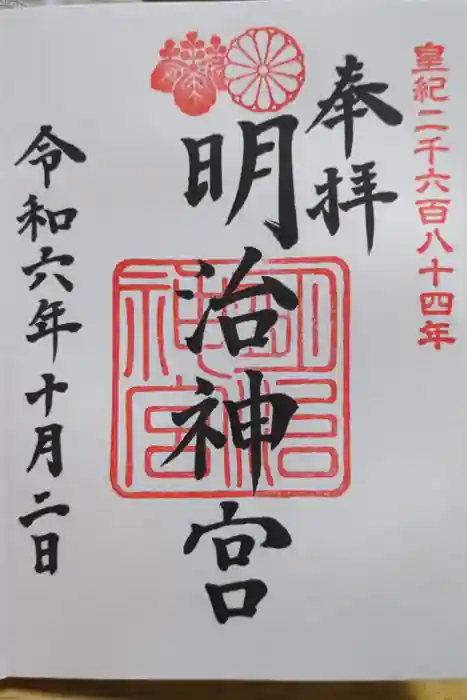 皇紀二千六百八十四年
奉拝
明治神宮
令和六年十月二日
明治神宮